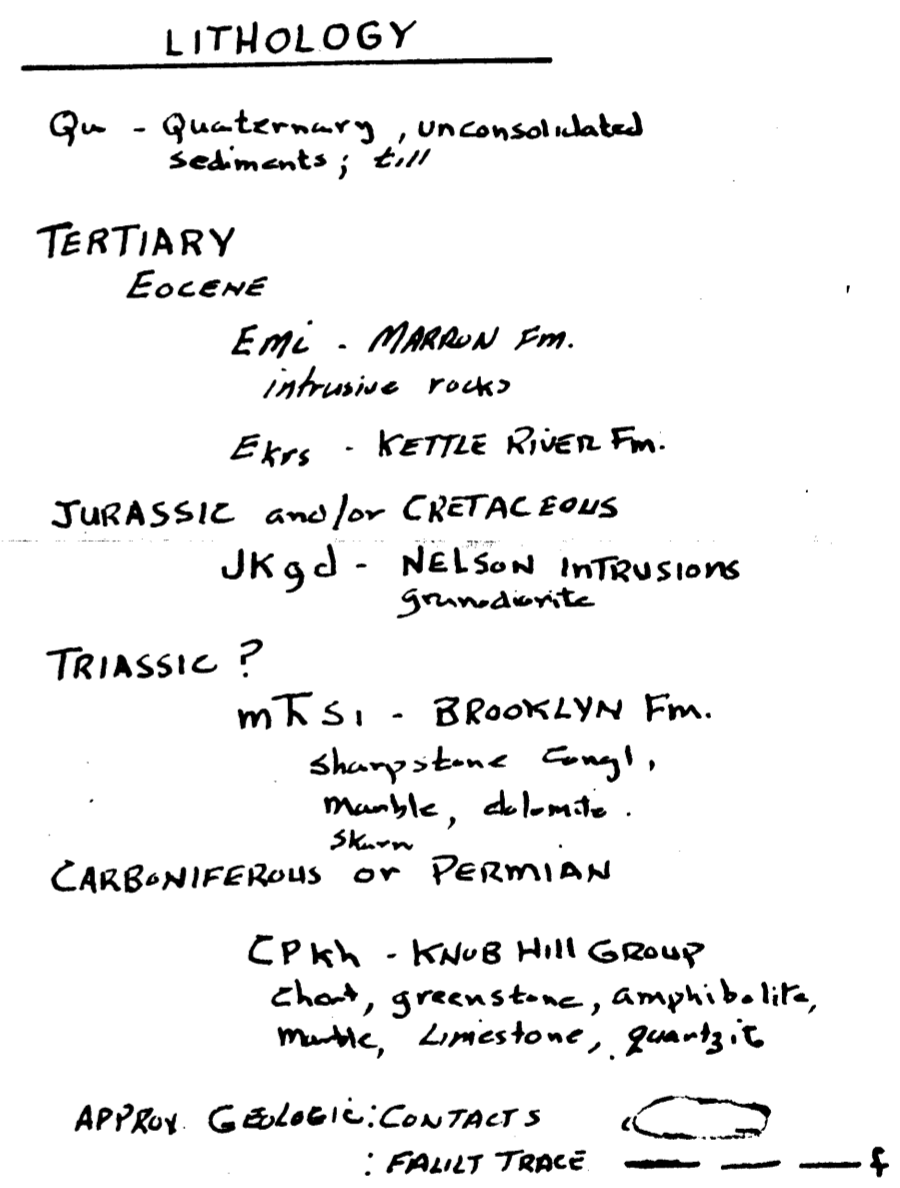 LITHOLOGY
Qu - Quaternary, unconsolidated
sediments; till
TERTIARY
EOCENE
Emi - MARRON Fm.
intrusive rocks
Ekrs - KETTLE RIVER Fm.
JURASSIC and/or CRETACEOUS
JKgd - NELSON INTRUSIONS
granodiorite
TRIASSIC ?
mTRs1 - BROOKLYN Fm.
sharpstone congl,
marble, dolomite.
skarn
CARBONIFEROUS or PERMIAN
CPkh - KNOB HILL GROUP
chert, greenstone, amphibolite,
marble, Limestone, quartzit
APPROX. GEOLOGIC: CONTACTS
: FAULT TRACE f